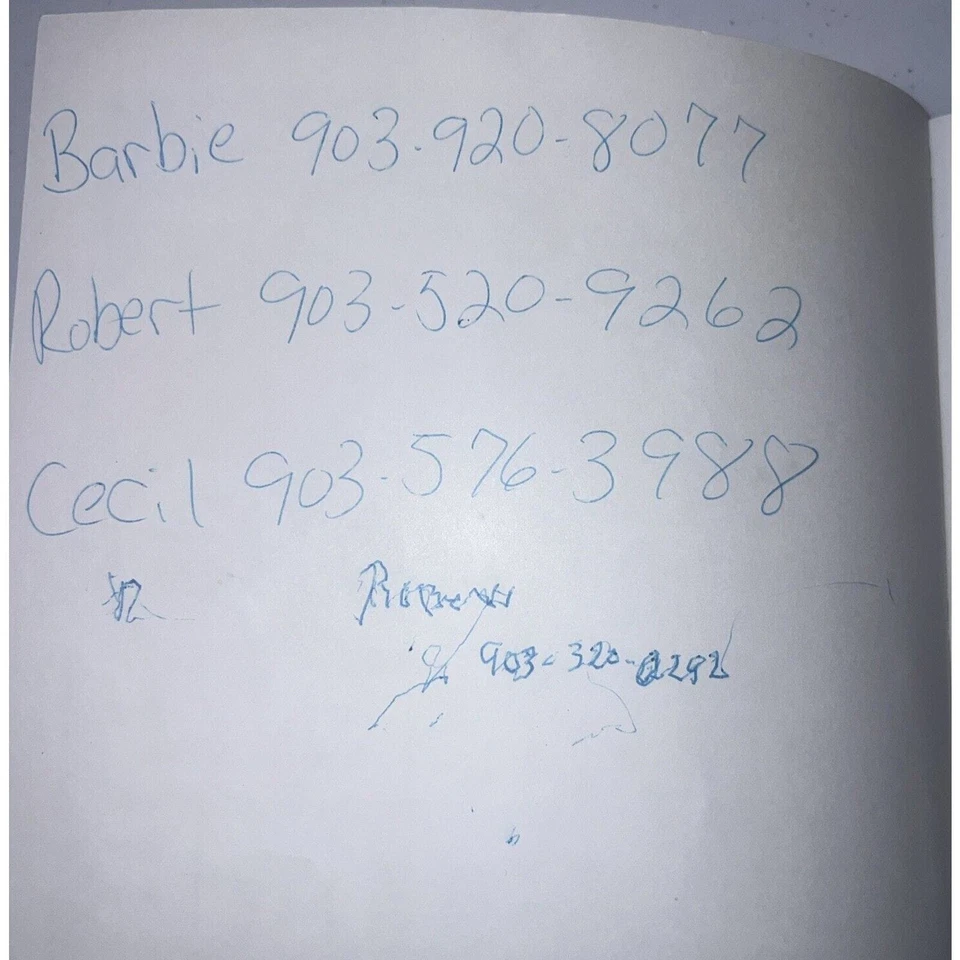 Barbie 903-920-8077
Robert 903-520-9262
Cecil 903-576-3988